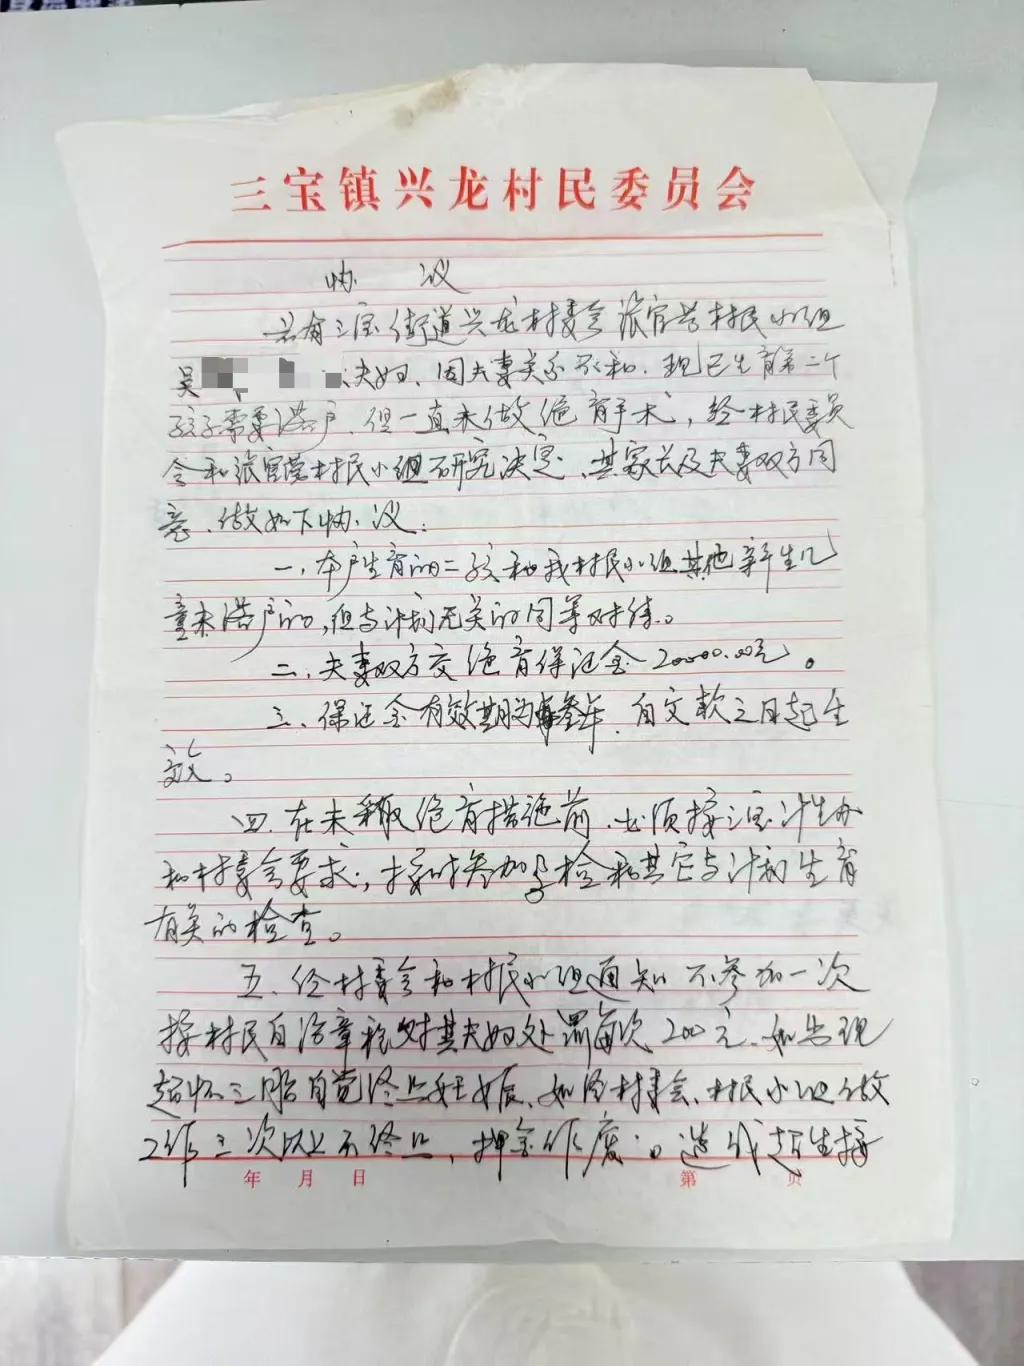 三宝镇兴龙村民委员会
协 议
兹有三宝街道兴龙村委会张官营村民小组
吴 夫妇、因夫妻关系不和、现已生育第二个
孩子需要落户、但一直未做绝育手术，经村民委员
会和张官营村民小组研究决定、其家长及夫妻双方同
意、做如下协议：
一、本户生育的二孩和我村民小组其他新生儿
童未落户的，但与计划无关的同等对待。
二、夫妻双方交绝育保证金20000.00元。
三、保证金有效期为叁年、自交款之日起生
效。
四、在未采取绝育措施前、必须按三宝计生办
和村委会要求；按时参加孕检和其它与计划生育
有关的检查。
五、经村委会和村民小组通知不参加一次
按村民自治章程对其夫妇处罚每次200元、如出现
超怀三胎自觉终止妊娠、如经村委会、村民小组做
工作三次以上不终止，押金作废；。造成超生按
年 月 日 第 页